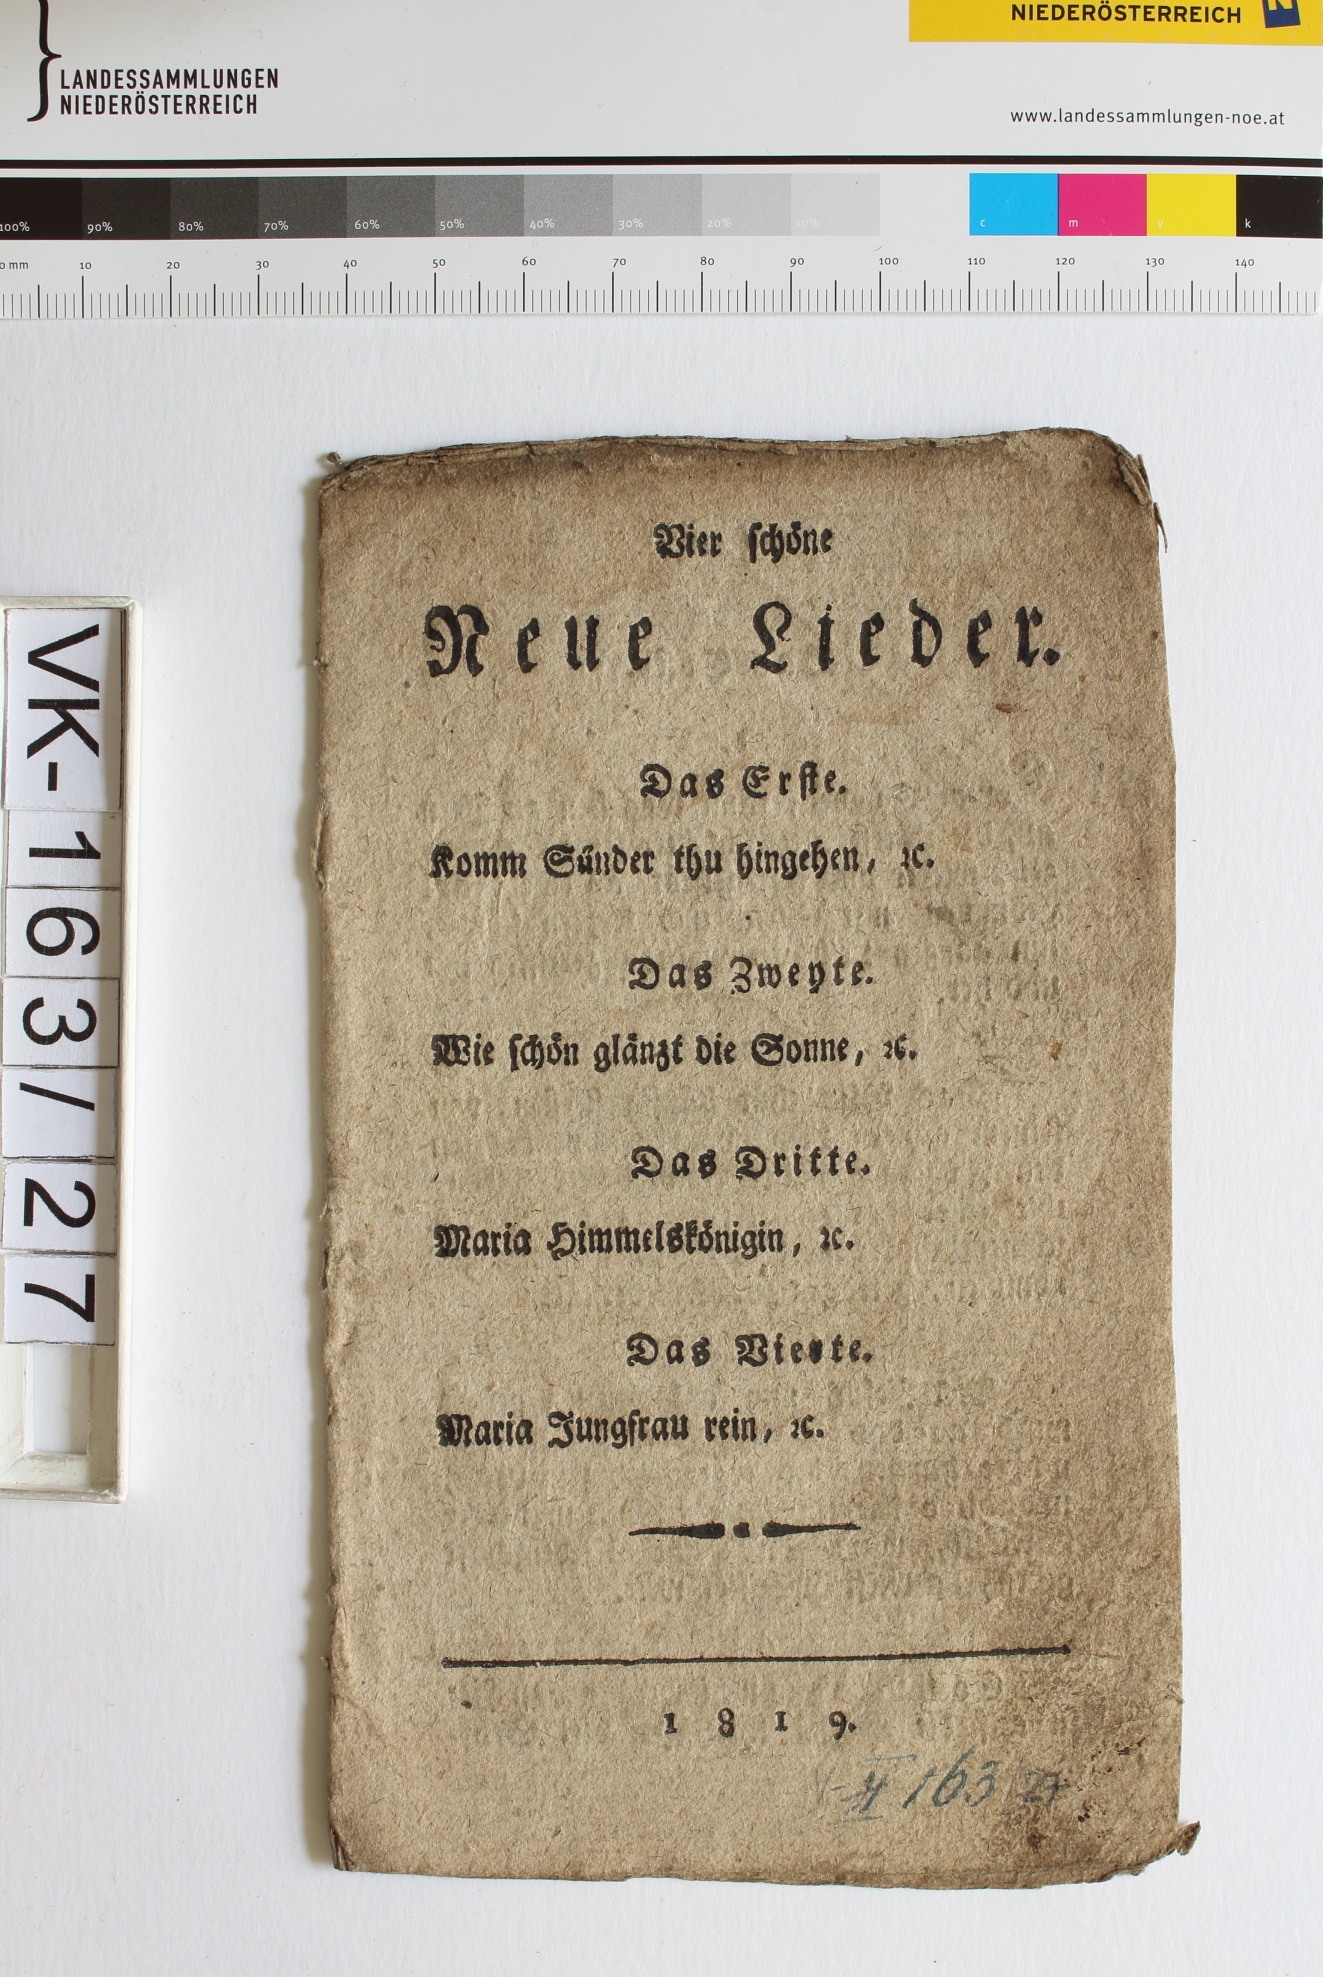 NIEDERÖSTERREICH
LANDESSAMMLUNGEN
NIEDERÖSTERREICH
www.landessammlungen-noe.at
100% 90% 80% 70% 60% 50% 40% 30% 20% 10% c m y k
0 mm 10 20 30 40 50 60 70 80 90 100 110 120 130 140
VK-163/27
Vier schöne
Neue Lieder.
Das Erste.
Komm Sünder thu hingehen, ꝛc.
Das Zweyte.
Wie schön glänzt die Sonne, ꝛc.
Das Dritte.
Maria Himmelskönigin, ꝛc.
Das Vierte.
Maria Jungfrau rein, ꝛc.
1819.
II 163/27